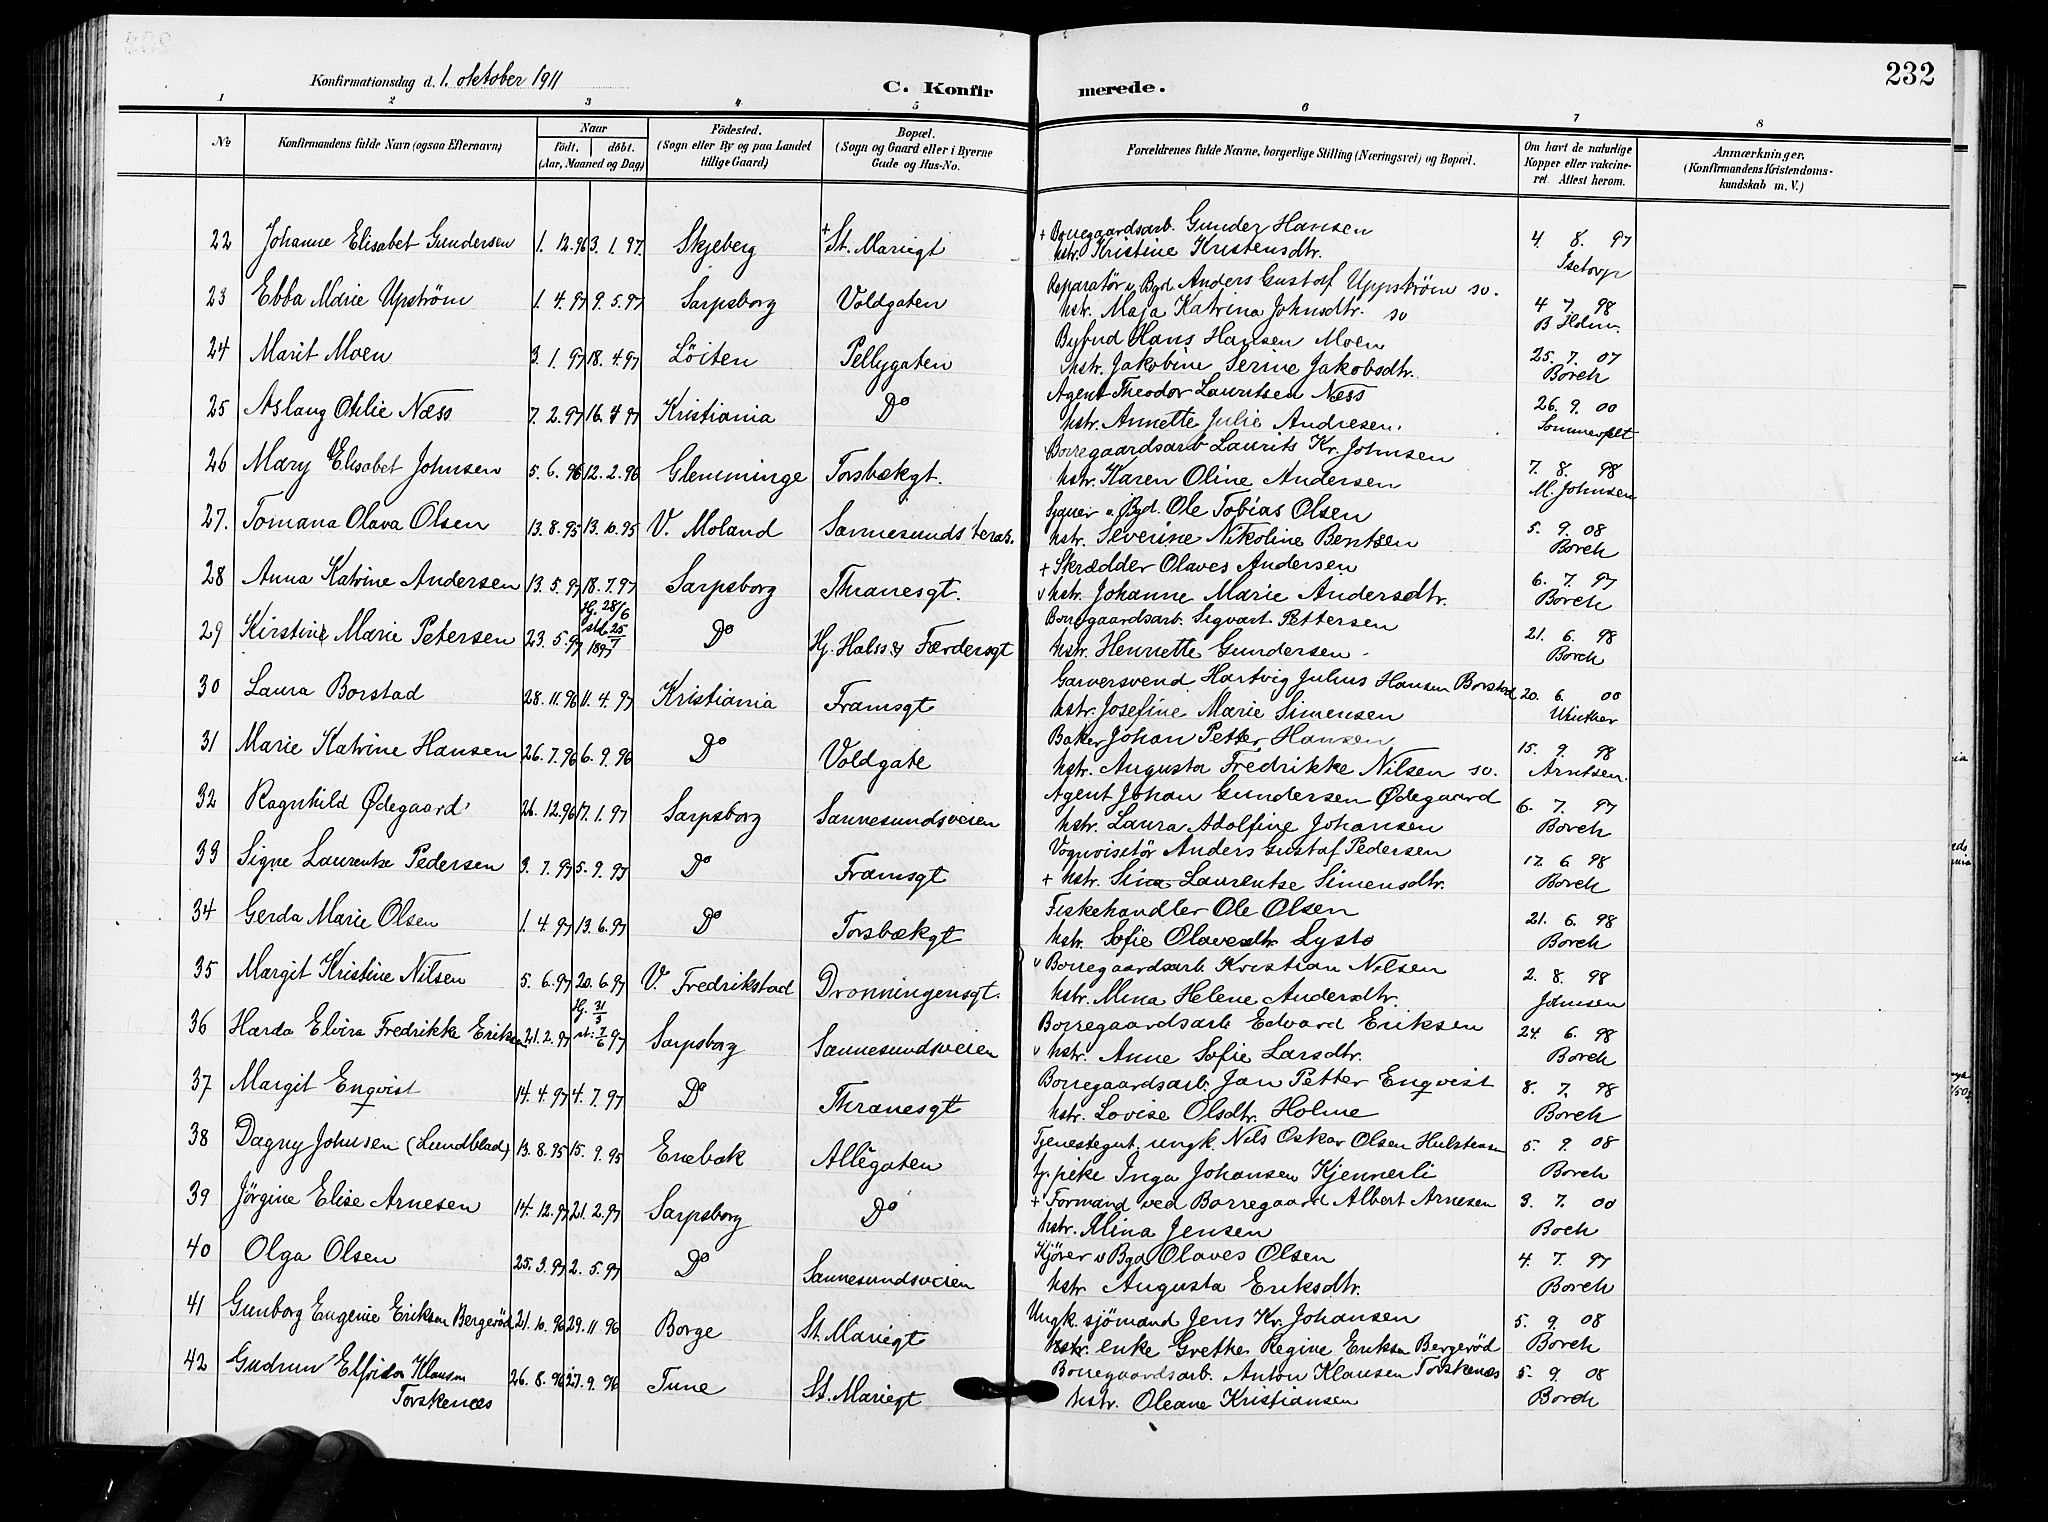 232
Konfirmationsdag d. 1. oktober 1911
C. Konfirmerede.
1 2 3 4 5 6 7 8
No
Konfirmandens fulde Navn (ogsaa Efternavn)
Naar
født. døbt.
(Aar, Maaned og Dag)
Födested.
(Sogn eller By og paa Landet
tillige Gaard)
Bopæl.
(Sogn og Gaard eller i Byerne
Gade og Hus-No.
Forældrenes fulde Navne, borgerlige Stilling (Næringsvei) og Bopæl.
Om havt de naturlige
Kopper eller vakcine-
ret. Attest herom.
Anmærkninger.
(Konfirmandens Kristendoms-
kundskab m. V.)
22 Johanne Elisabet Gundersen 1. 12. 96 3. 1. 97. Skjeberg + St. Mariegt + Borregaardsarb. Gunder Hansen 4. 8. 97
hstr. Kristine Kristensdtr. Isetorp
23 Ebba Marie Upström 1. 4. 97 9. 5. 97 Sarpsborg Voldgaten Reparatör v. Bgd. Anders Gustaf Uppström so. 4 7. 98
hstr. Maja Katrina Johnsdtr. so B Holm.
24 Marit Moen 3. 1. 97 18. 4. 97 Löiten Pellygaten Bybud Hans Hansen Moen 25. 7. 07
hstr. Jakobine Serine Jakobsdtr. Borch
25 Aslaug Otilie Næss 7. 2. 97 16. 4 97 Kristiania Do Agent Theodor Lauritsen Næss 26. 9. 00
hstr. Annette Julie Andresen. Sommerfelt
26 Mary Elisabet Johnsen 5. 6. 96 12. 2. 96 Glemminge Torsbækgt. Borregaardsarb Laurits Kr. Johnsen 7. 8. 98
hstr. Karen Oline Andersen M. Johnsen
27. Tomana Olava Olsen 13. 8. 95 13. 10. 95 V. Moland Sannesunds teras. v. Bgd. Ole Tobias Olsen 5. 9. 08
hstr. Severine Nikoline Bentsen Borch
28 Anna Katrine Andersen 13. 5. 97 18. 7. 97 Sarpsborg Thranesgt. + Skrædder Olaves Andersen 6. 7. 97
v hstr. Johanne Marie Andersdtr. Borch
29 Kirstine Marie Petersen 23. 5. 97 Hj. 28/6 std. 25/7 1897 Do Hj. Halss & Færdersgt Borregaardsarb. Sigvart Pettersen 21. 6. 98
hstr. Henriette Gundersen Borch
30 Laura Borstad 28. 11. 96 11. 4. 97 Kristiania Framsgt Garversvend Hartvig Julius Hansen Borstad 20. 6. 00
hstr. Josefine Marie Simensen Winther
31 Marie Katrine Hansen 26. 7. 96 6. 9. 96 Do Voldgate Baker Johan Petter Hansen 15. 9. 98
hstr. Augusta Fredrikke Nilsen so. Arntsen.
32 Ragnhild Ødegaard 26. 12. 96 17. 1. 97 Sarpsborg Sannesundsveien Agent Johan Gundersen Ødegaard 6. 7. 97
hstr. Laura Adolfine Johansen Borch
33 Signe Laurentse Pedersen 3. 7. 97 5. 9. 97 Do Framsgt Vognvisitör Anders Gustaf Pedersen 17. 6 98
+ hstr. Sina Laurentse Simensdtr. Borch
34 Gerda Marie Olsen 1. 4. 97 13. 6. 97 Do Torsbækgt Fiskehandler Ole Olsen 21. 6. 98
hstr. Sofie Olavesdtr. Lysto Borch
35 Margit Kristine Nilsen 5. 6. 97 20. 6. 97 V. Fredrikstad Dronningensgt. v Borregaardsarb. Kristian Nilsen 2. 8. 98
hstr. Mina Helene Andersdtr. Johnsen
36 Harda Elvira Fredrikke Eriksen 21. 2. 97 Hj. 31/3 st. 7/6 97 Sarpsborg Sannesundsveien Borregaardsarb Edvard Eriksen 24. 6. 98
v hstr. Anne Sofie Larsdtr. Borch
37 Margit Enqvist 14. 4. 97 4. 7. 97 Do Thranesgt Borregaardsarb. Jan Petter Enqvist 8. 7. 98
hstr. Lovise Olsdtr. Holme Borch
38 Dagny Johnsen (Lundblad) 13. 8. 95 15. 9. 95 Enebak Allégaten Tjenestegut. ungk. Nils Oskar Olsen Hulsteinsen 5. 9. 08
tj. pike Inga Johansen Kjennerli Borch
39 Jörgine Elise Arnesen 14. 12. 97 21. 2. 97 Sarpsborg Do + Formand ved Borregaard Albert Arnesen 3. 7. 00
hstr. Mina Jensen Boch
40 Olga Olsen 25. 3. 97 2. 5. 97 Do Sannesundsveien Kjörer v Bgd Olaves Olsen 4. 7. 97
hstr Augusta Eriksdtr. Borch
41 Gunborg Eugenie Eriksen Bergeröd 21. 10. 96 29. 11 96 Borge St. Mariegt Ungk. sjömand Jens Kr. Johansen 5. 9. 08
enke Grethe Regine Eriksen Bergeröd Borch
42 Gudrun Elfrida Klausen Torskenæs 26. 8. 96 27. 9. 96 Tune St. Mariegt Borregaardsarb. Anton Klausen Torskenæs 5. 9. 08
hstr. Oleane Kristiansen Borch